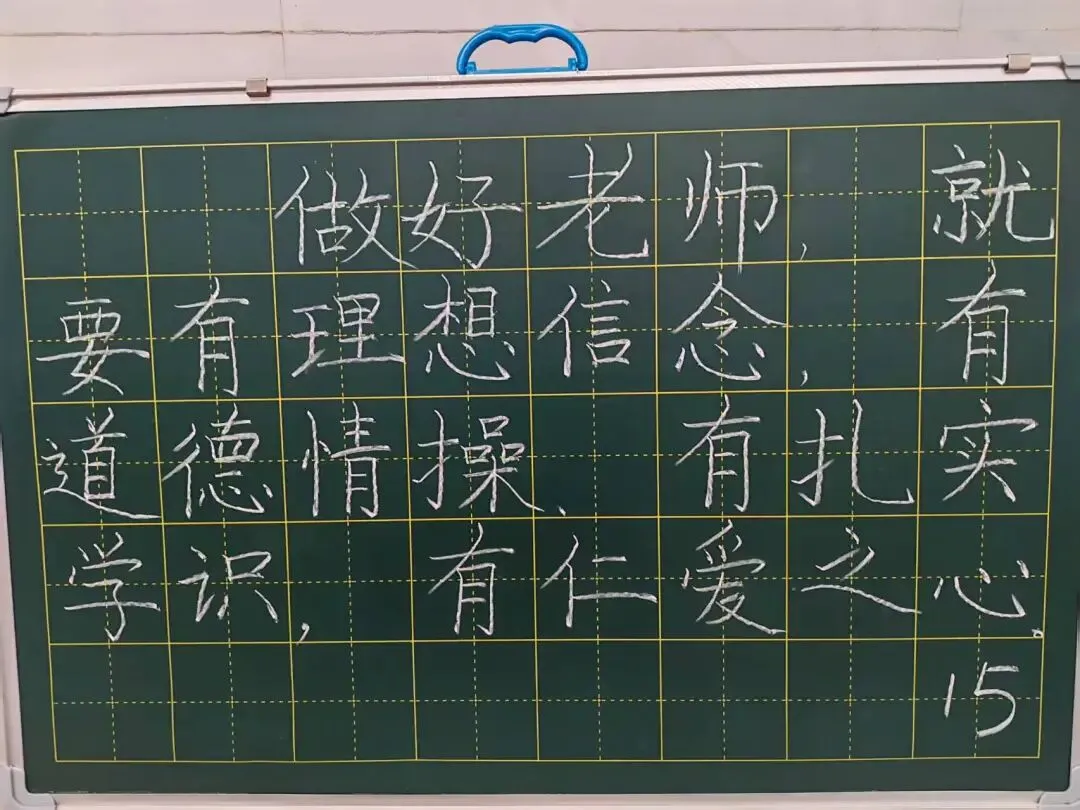 做好老师,就
要有理想信念,有
道德情操、有扎实
学识,有仁爱之心。
15